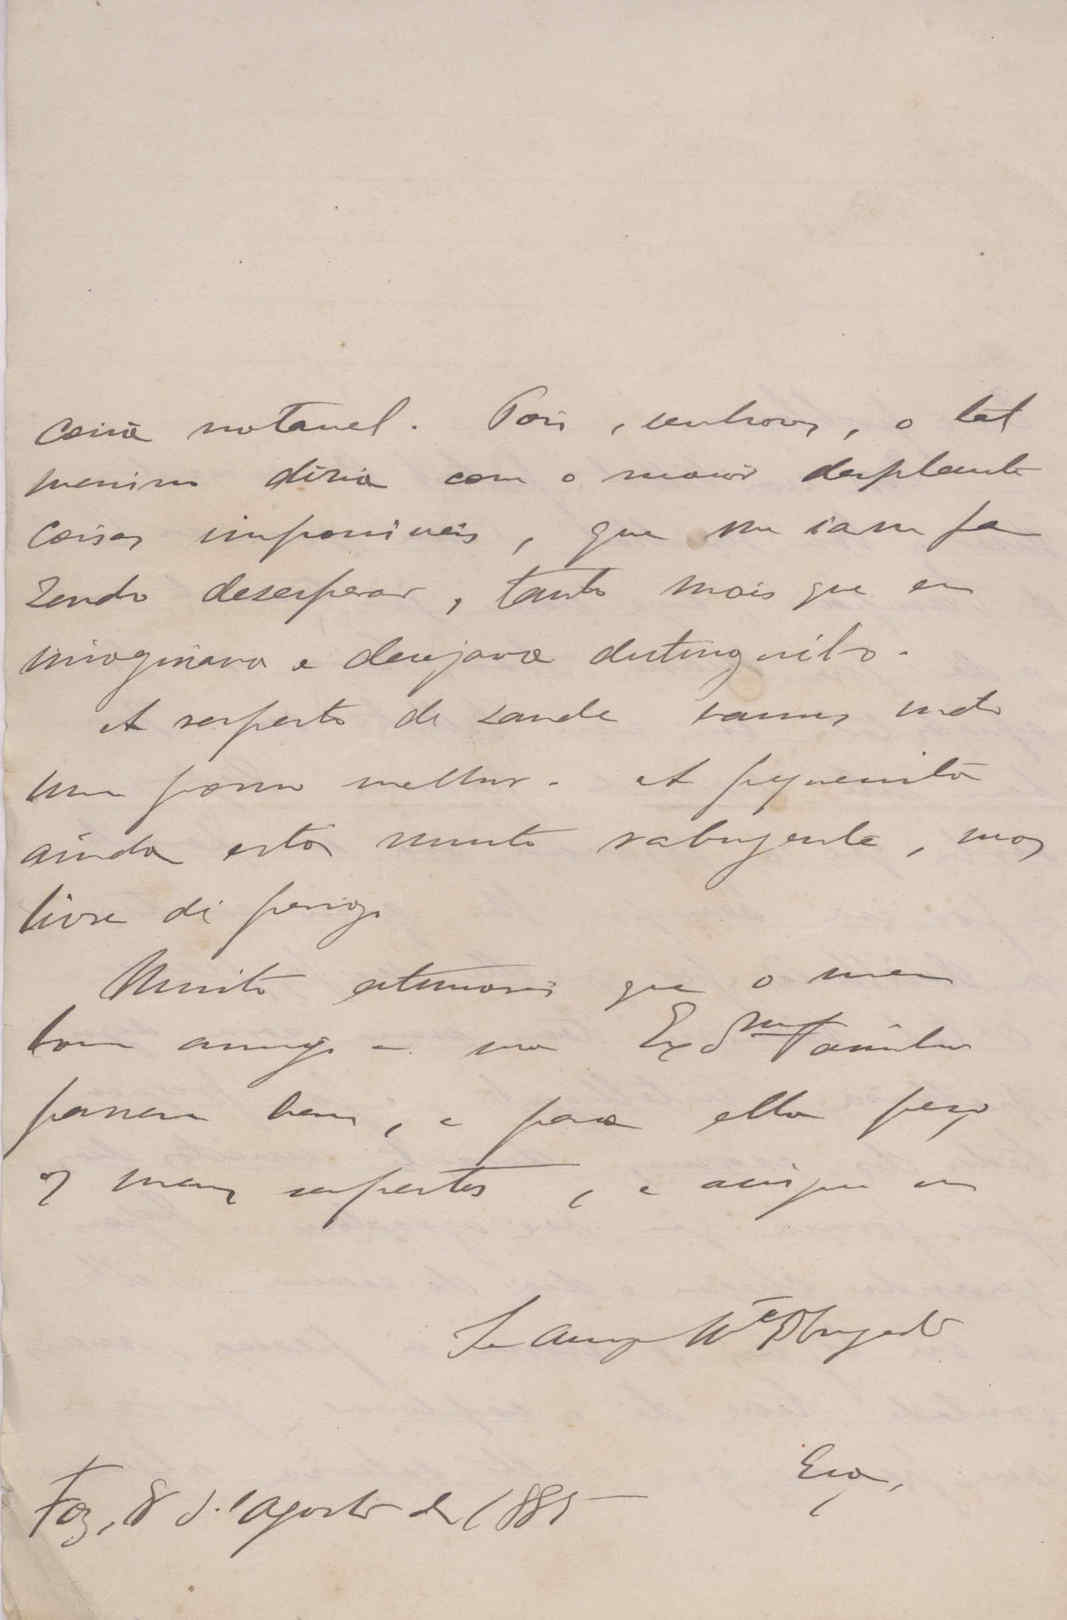 coisa notavel. Pois, senhores, o tal
menino dizia com o maior desplante
coisas impossiveis, que me iam fa
zendo desesperar, tanto mais que eu
imaginava e desejava distinguil-o.
A respeito de saude vamos indo
um pouco melhor. A pequenita
ainda está muito rabugenta, mas
livre de perigo
Muito estimarei que o meu
bom amigo e sua Exma Familia
passem bem, e para ella peço
os meus respeitos, e
Seu Amigo Mto Obrigado
Foz, 8 d'agosto de 1885